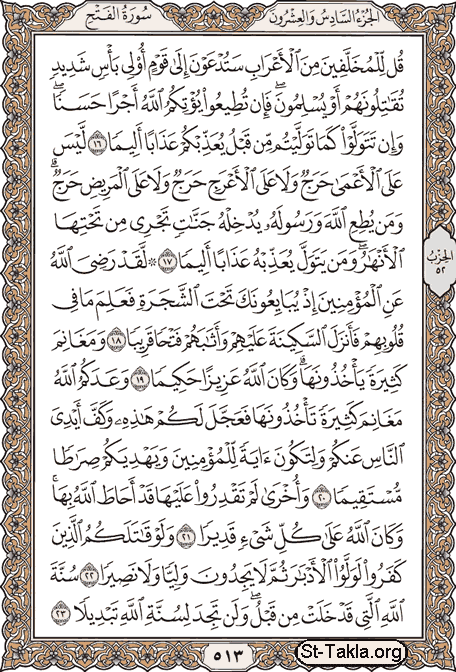 الجزء السادس والعشرون
سورة الفتح
قُل لِّلْمُخَلَّفِينَ مِنَ ٱلْأَعْرَابِ سَتُدْعَوْنَ إِلَىٰ قَوْمٍ أُو۟لِى بَأْسٍ شَدِيدٍ
تُقَـٰتِلُونَهُمْ أَوْ يُسْلِمُونَ ۖ فَإِن تُطِيعُوا۟ يُؤْتِكُمُ ٱللَّهُ أَجْرًا حَسَنًا ۖ
وَإِن تَتَوَلَّوْا۟ كَمَا تَوَلَّيْتُم مِّن قَبْلُ يُعَذِّبْكُمْ عَذَابًا أَلِيمًا ١٦ لَّيْسَ
عَلَى ٱلْأَعْمَىٰ حَرَجٌ وَلَا عَلَى ٱلْأَعْرَجِ حَرَجٌ وَلَا عَلَى ٱلْمَرِيضِ حَرَجٌ ۗ
وَمَن يُطِعِ ٱللَّهَ وَرَسُولَهُۥ يُدْخِلْهُ جَنَّـٰتٍ تَجْرِى مِن تَحْتِهَا
ٱلْأَنْهَـٰرُ ۖ وَمَن يَتَوَلَّ يُعَذِّبْهُ عَذَابًا أَلِيمًا ١٧ ۞ لَّقَدْ رَضِىَ ٱللَّهُ
الحزب
٥٢
عَنِ ٱلْمُؤْمِنِينَ إِذْ يُبَايِعُونَكَ تَحْتَ ٱلشَّجَرَةِ فَعَلِمَ مَا فِى
قُلُوبِهِمْ فَأَنزَلَ ٱلسَّكِينَةَ عَلَيْهِمْ وَأَثَـٰبَهُمْ فَتْحًا قَرِيبًا ١٨ وَمَغَانِمَ
كَثِيرَةً يَأْخُذُونَهَا ۗ وَكَانَ ٱللَّهُ عَزِيزًا حَكِيمًا ١٩ وَعَدَكُمُ ٱللَّهُ
مَغَانِمَ كَثِيرَةً تَأْخُذُونَهَا فَعَجَّلَ لَكُمْ هَـٰذِهِۦ وَكَفَّ أَيْدِىَ
ٱلنَّاسِ عَنكُمْ وَلِتَكُونَ ءَايَةً لِّلْمُؤْمِنِينَ وَيَهْدِيَكُمْ صِرَٰطًا
مُّسْتَقِيمًا ٢٠ وَأُخْرَىٰ لَمْ تَقْدِرُوا۟ عَلَيْهَا قَدْ أَحَاطَ ٱللَّهُ بِهَا ۚ
وَكَانَ ٱللَّهُ عَلَىٰ كُلِّ شَىْءٍ قَدِيرًا ٢١ وَلَوْ قَـٰتَلَكُمُ ٱلَّذِينَ
كَفَرُوا۟ لَوَلَّوُا۟ ٱلْأَدْبَـٰرَ ثُمَّ لَا يَجِدُونَ وَلِيًّا وَلَا نَصِيرًا ٢٢ سُنَّةَ
ٱللَّهِ ٱلَّتِى قَدْ خَلَتْ مِن قَبْلُ ۖ وَلَن تَجِدَ لِسُنَّةِ ٱللَّهِ تَبْدِيلًا ٢٣
٥١٣
St-Takla.org